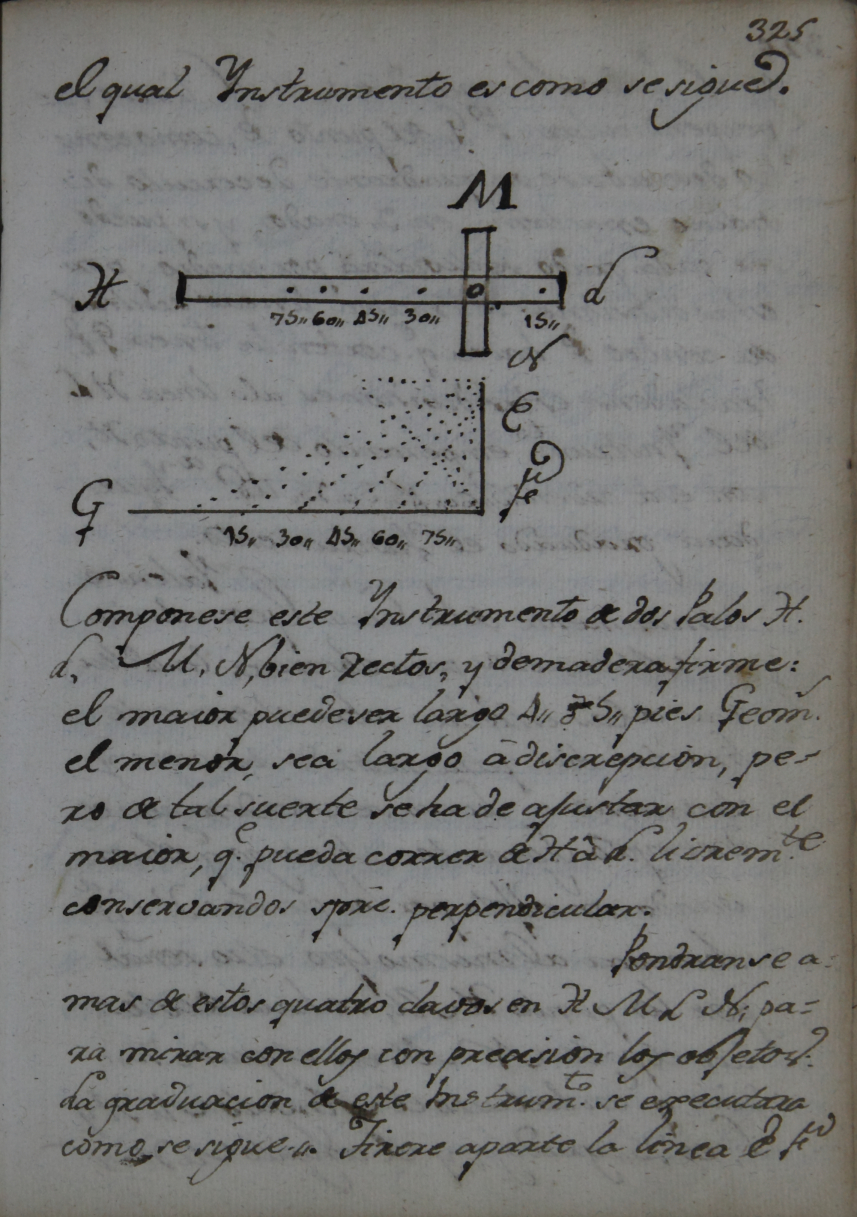 325
el qual Ynstrumento es como se sigue.
M
H
L
75,, 60,, 45,, 30,, 15,,
N
E
F
G
15,, 30,, 45,, 60,, 75,,
Componese este Ynstrumento de dos Palos H.
L. M. N, bien rectos, y de madera firme:
el maior puede ser largo 4,, 5,, pies Geom.
el menor, sea largo à discrepcion, pe-
ro de tal suerte se ha de ajustar con el
maior, q.e pueda correr de H à L. librem.te
conservandos spre. perpendicular.
Pondranse a-
mas de estos quatro clavos en H M L N; pa-
ra mirar con ellos con precision los objetos.
La graduacion de este Instrum.to se executara
como se sigue. Tirese aparte la linea E F